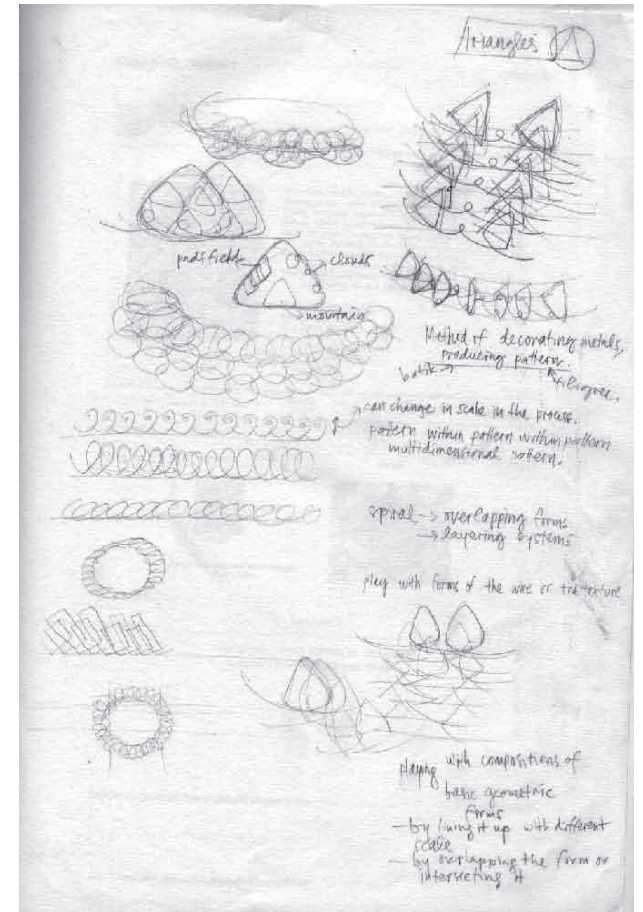 triangles
padi field
clouds
mountain
Method of decorating metals,
producing pattern.
batik
filigree.
can change in scale in the process.
pattern within pattern within pattern
multidimensional pattern.
spiral → overlapping forms
→ layering systems
play with forms of the wire or the texture
playing with compositions of
basic geometric
forms
— by lining it up with different
scale
— by overlapping the form or
intersecting it